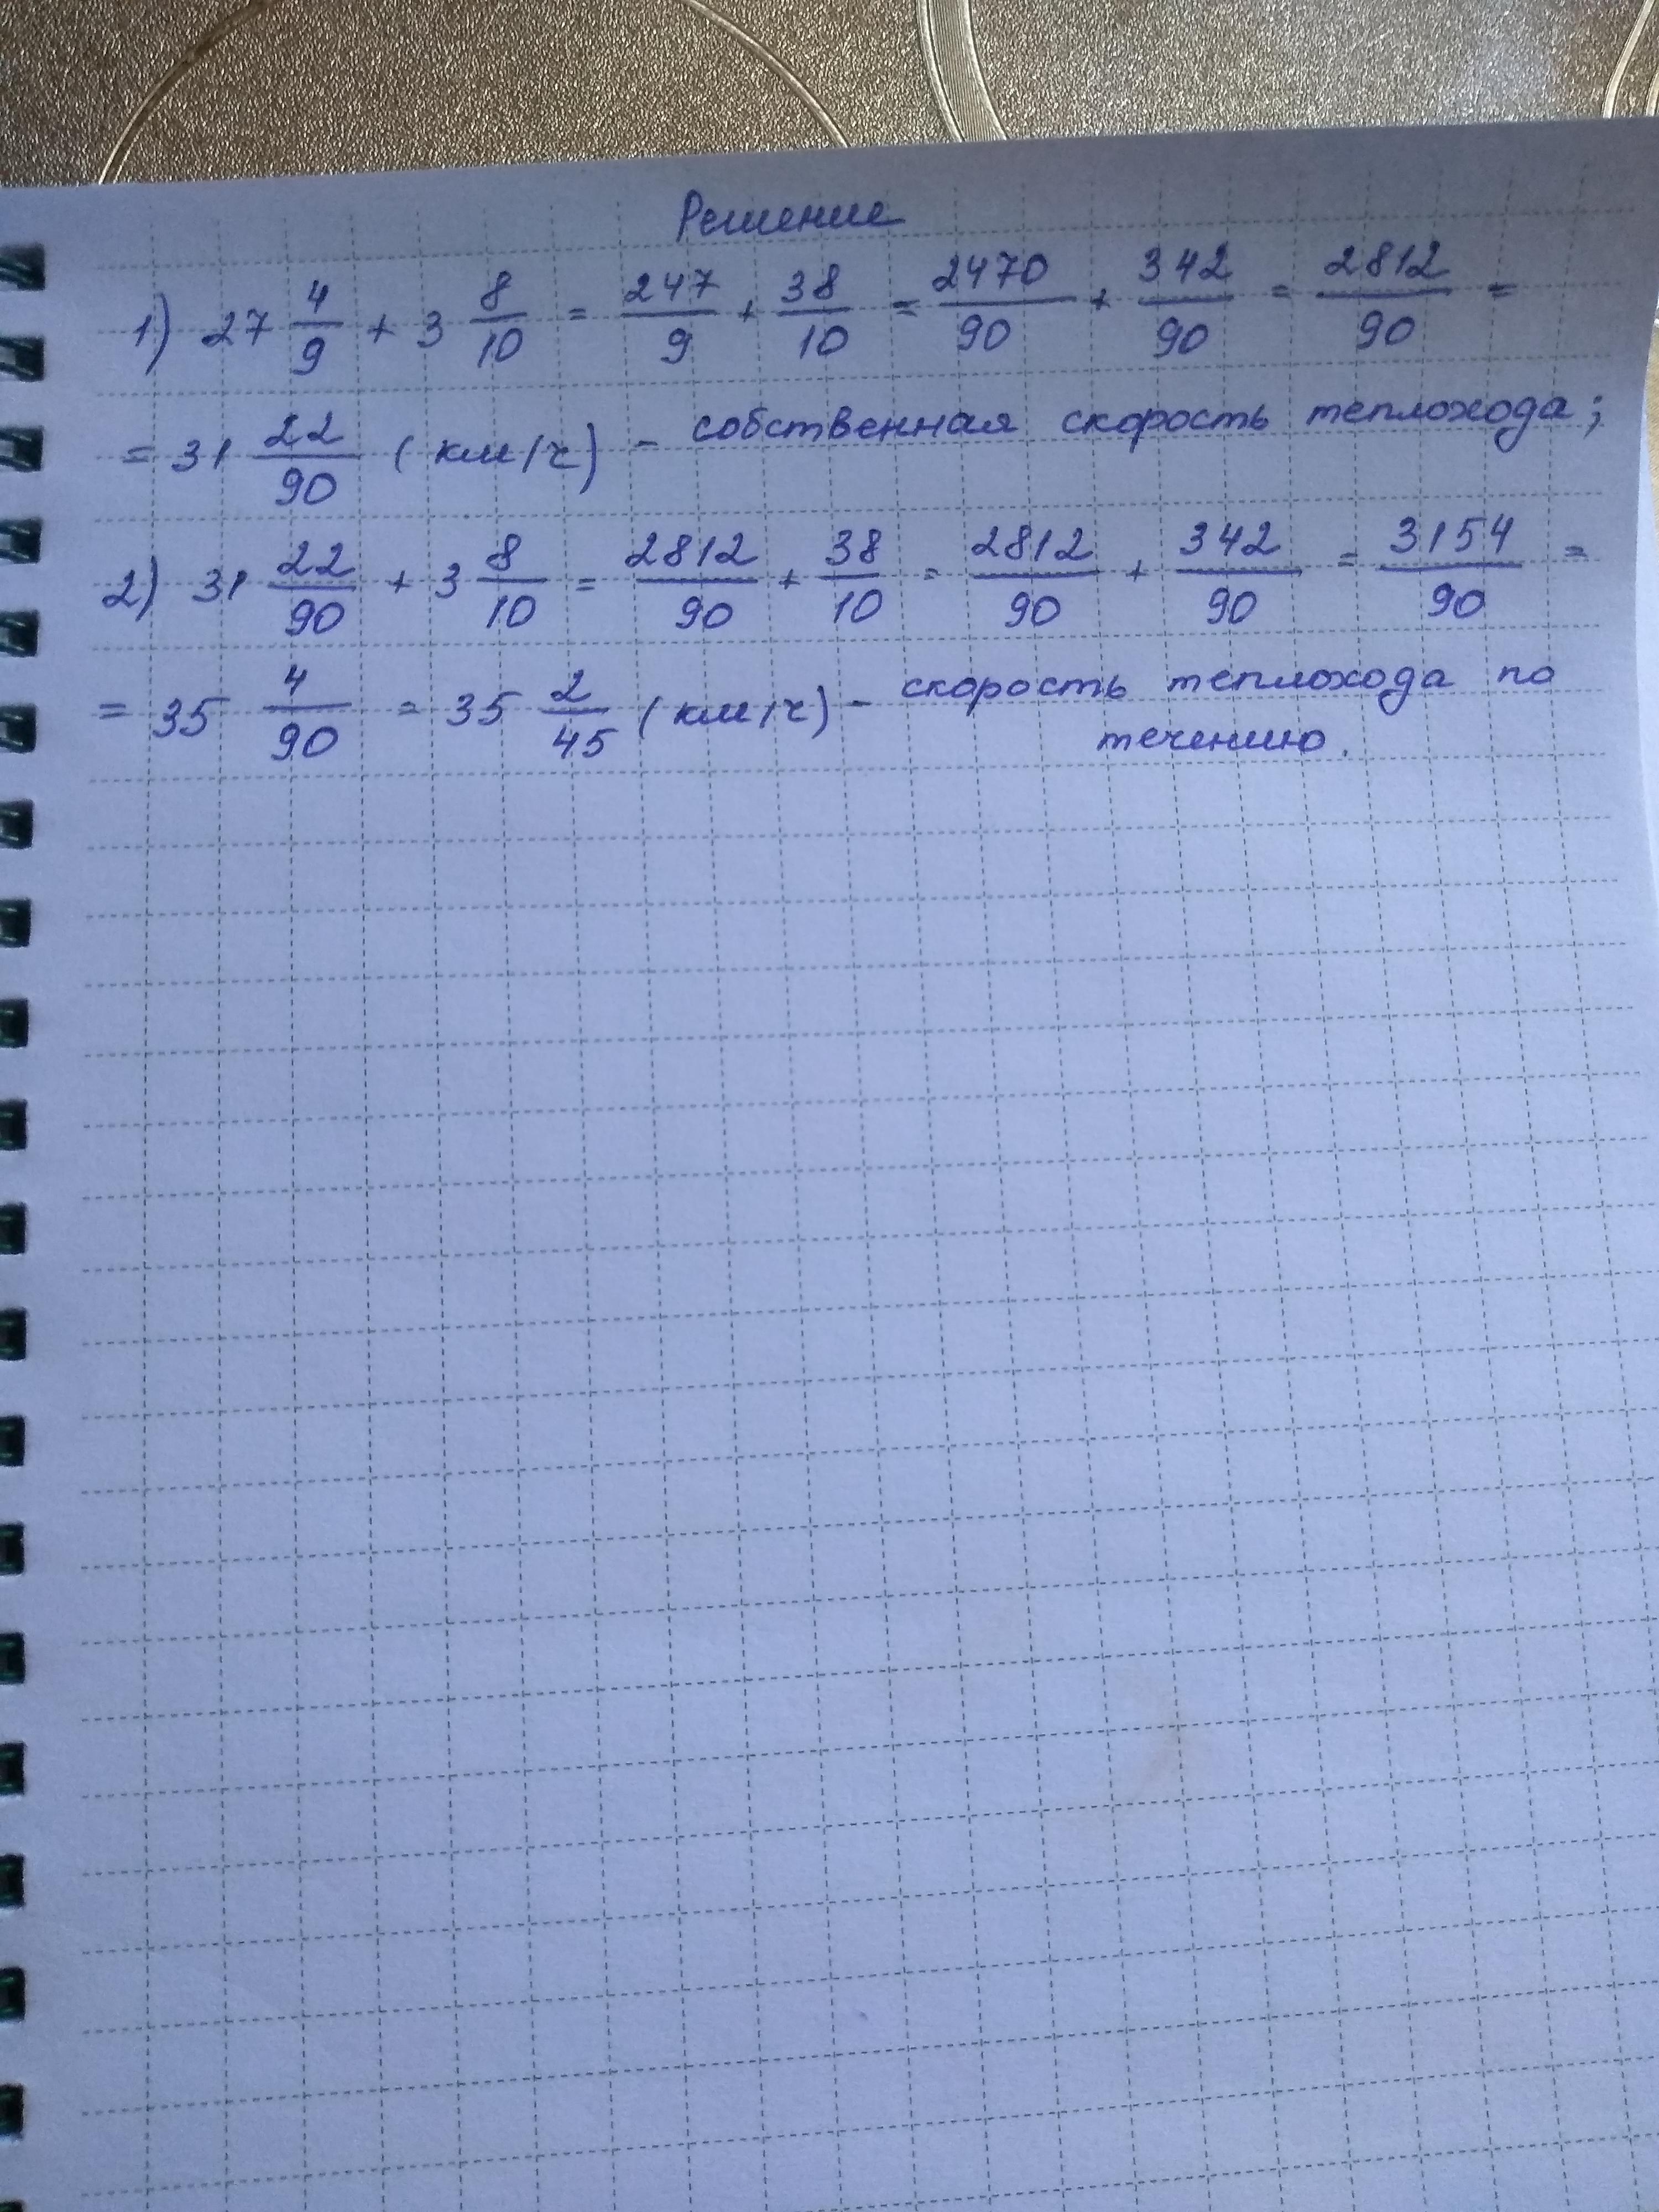 Решение
1) 27 4/9 + 3 8/10 = 247/9 + 38/10 = 2470/90 + 342/90 = 2812/90 =
= 31 22/90 (км/ч) - собственная скорость теплохода;
2) 31 22/90 + 3 8/10 = 2812/90 + 38/10 = 2812/90 + 342/90 = 3154/90 =
= 35 4/90 = 35 2/45 (км/ч) - скорость теплохода по
течению.